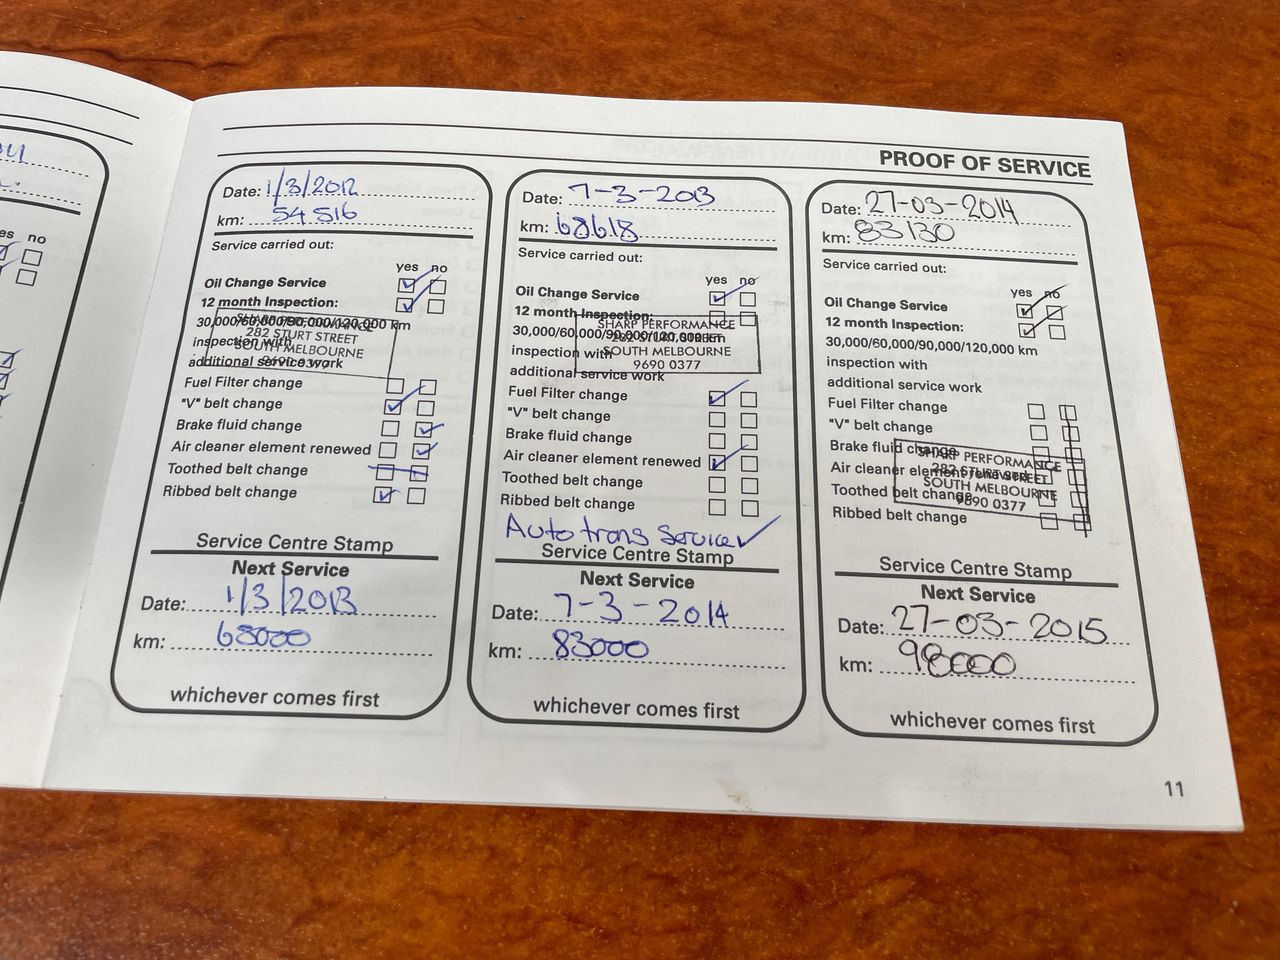 es no
PROOF OF SERVICE
Date: 1/3/2012
km: 54 516
Service carried out:
yes no
Oil Change Service
12 month Inspection:
30,000/60,000/90,000/120,000 km
inspection with
additional service work
SHARP PERFORMANCE
282 STURT STREET
SOUTH MELBOURNE
9690 0377
Fuel Filter change
"V" belt change
Brake fluid change
Air cleaner element renewed
Toothed belt change
Ribbed belt change
Service Centre Stamp
Next Service
Date: 1/3/2013
km: 68000
whichever comes first
Date: 7-3-2013
km: 68618
Service carried out:
yes no
Oil Change Service
12 month Inspection:
30,000/60,000/90,000/120,000 km
inspection with
additional service work
SHARP PERFORMANCE
282 STURT STREET
SOUTH MELBOURNE
9690 0377
Fuel Filter change
"V" belt change
Brake fluid change
Air cleaner element renewed
Toothed belt change
Ribbed belt change
Auto trans Service
Service Centre Stamp
Next Service
Date: 7-3-2014
km: 83000
whichever comes first
Date: 27-03-2014
km: 83130
Service carried out:
yes no
Oil Change Service
12 month Inspection:
30,000/60,000/90,000/120,000 km
inspection with
additional service work
Fuel Filter change
"V" belt change
Brake fluid change
Air cleaner element renewed
Toothed belt change
Ribbed belt change
SHARP PERFORMANCE
282 STURT STREET
SOUTH MELBOURNE
9690 0377
Service Centre Stamp
Next Service
Date: 27-03-2015
km: 98000
whichever comes first
11